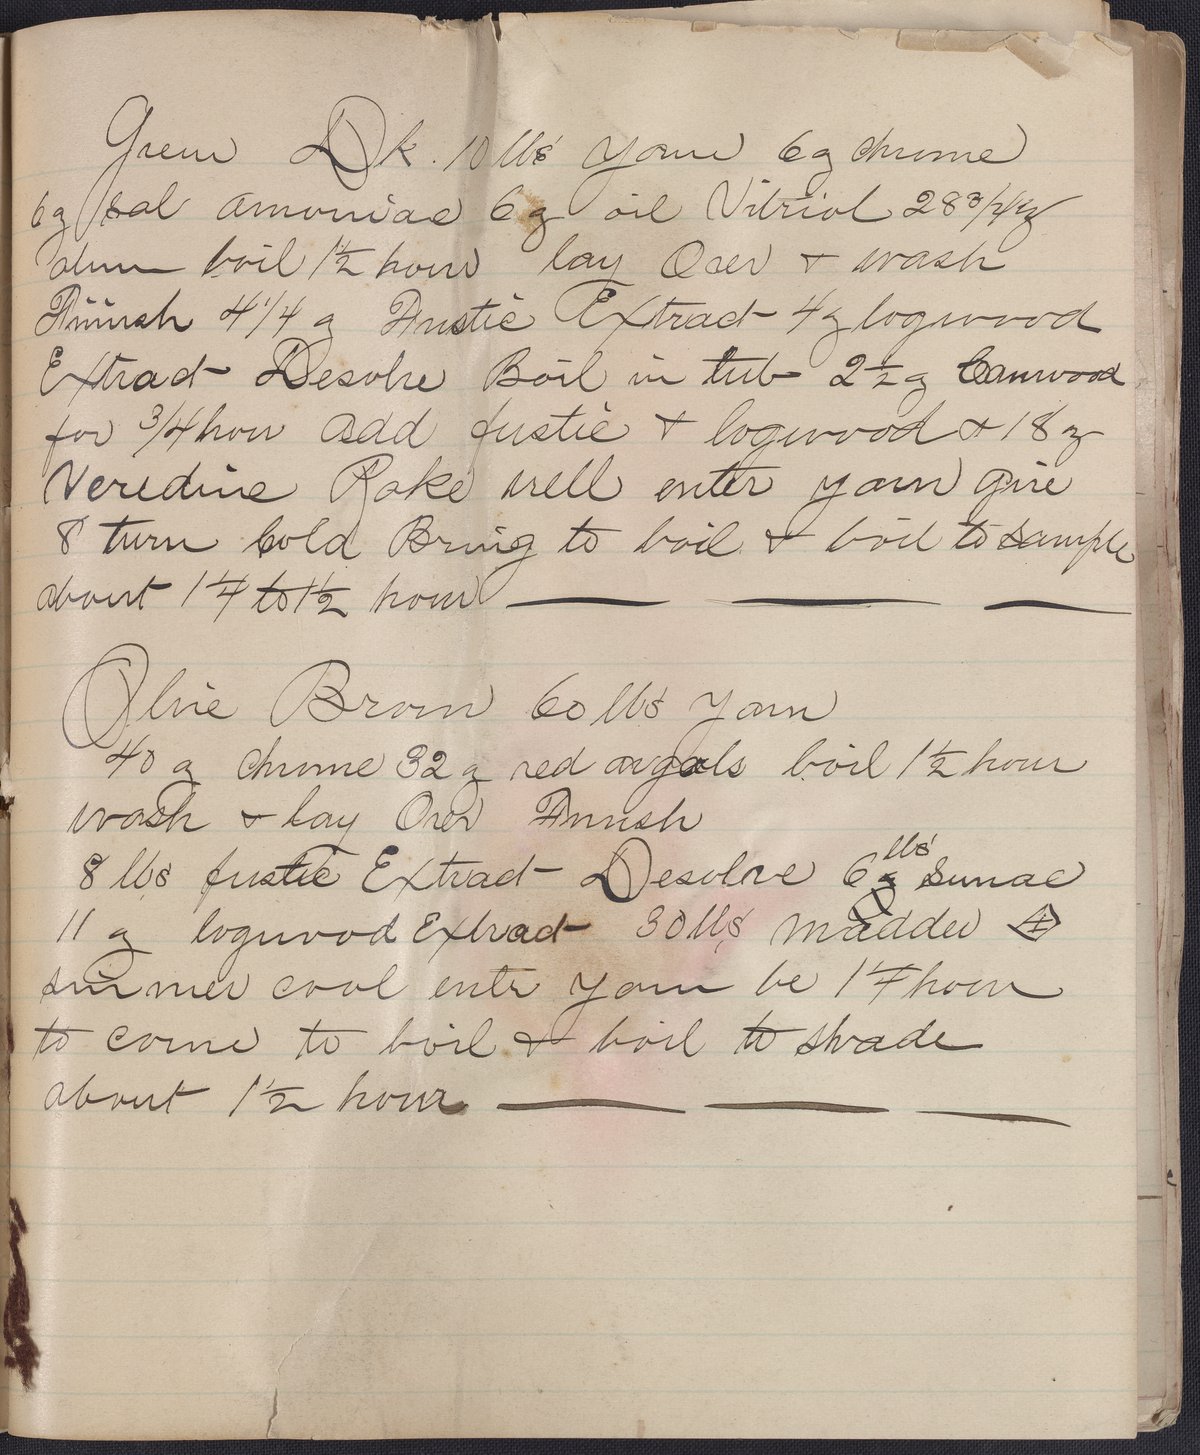 Green Dk. 10 lbs yarn 6 oz chrome
6 oz sal amoniac 6 oz oil Vitriol 28 3/4 oz
alum boil 1 1/2 hour lay Over + wash
Finish 4 1/4 oz Fustic Extract 4 oz logwood
Extract Desolve Boil in tub 2 1/2 oz Camwood
for 3/4 hour add fustic + logwood + 18 oz
Veredine Rake well enter yarn give
8 turn Cold Bring to boil + boil to sample
about 1 1/4 to 1 1/2 hour
Olive Brown 60 lbs yarn
40 oz chrome 32 oz red argols boil 1 1/2 hour
wash + lay Over Finish
8 lbs fustic Extract Desolve 6 lbs Sumac
11 oz logwood Extract 30 lbs madder
simmer cool enter yarn be 1 1/4 hour
to come to boil + boil to shade
about 1 1/2 hour